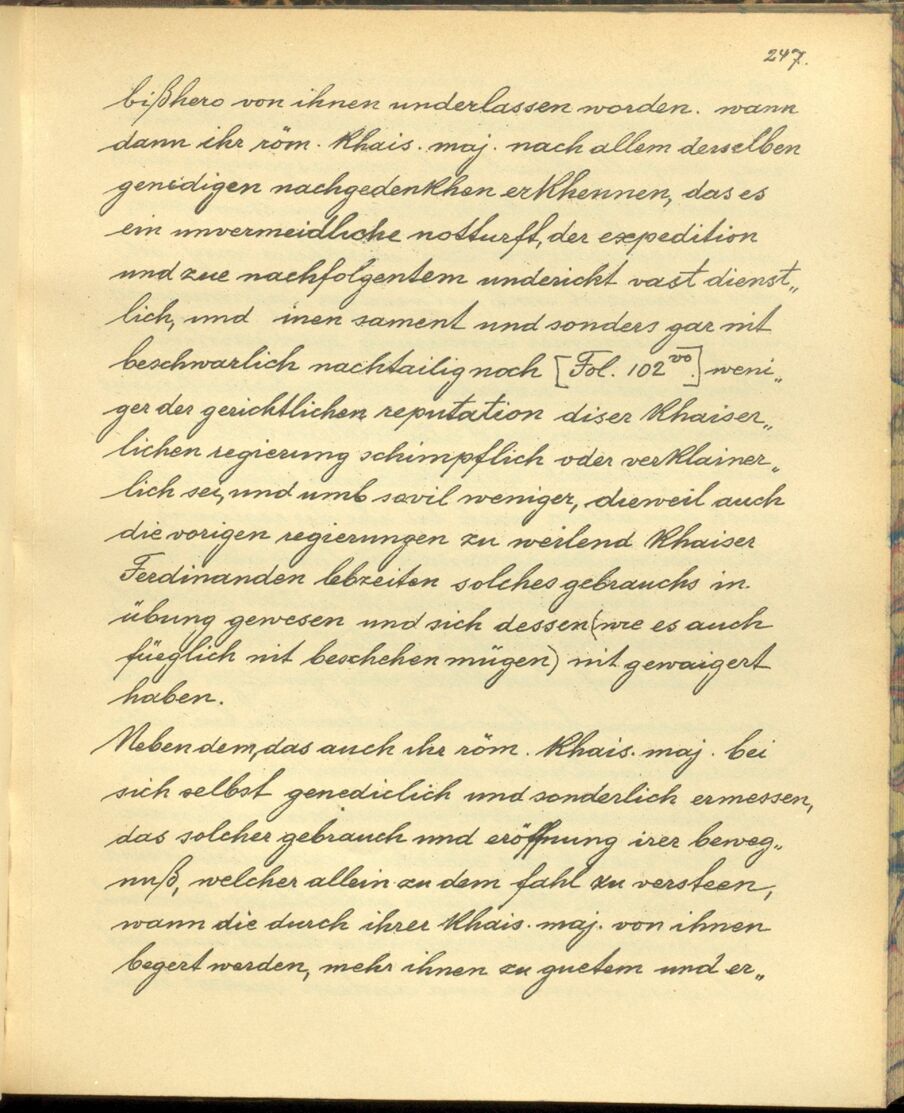 247.
bißhero von ihnen underlassen worden. wann
dann ihr röm. Khais. maj. nach allem derselben
genedigen nachgedenkhen erkhennen, das es
ein unvermeidliche notturft, der expedition
und zue nachfolgentem undericht vast dienst„
lich, und inen sament und sonders gar nit
beschwarlich nachtailig noch [Fol. 102 vo.] weni„
ger der gerichtlichen reputation diser Khaiser„
lichen regierung schimpflich oder verklainer„
lich sei, und umb sovil weniger, dieweil auch
die vorigen regierungen zu weilend Khaiser
Ferdinanden lebzeiten solches gebrauchs in
übung gewesen und sich dessen (wie es auch
füeglich nit beschehen mügen) nit gewaigert
haben.
Neben dem, das auch ihr röm. Khais. maj. bei
sich selbst genediclich und sonderlich ermessen,
das solcher gebrauch und eröffnung irer beweg„
nuß, welcher allein zu dem fahl zu versteen,
wann die durch ihrer Khais. maj. von ihnen
begert werden, mehr ihnen zu guetem und er„